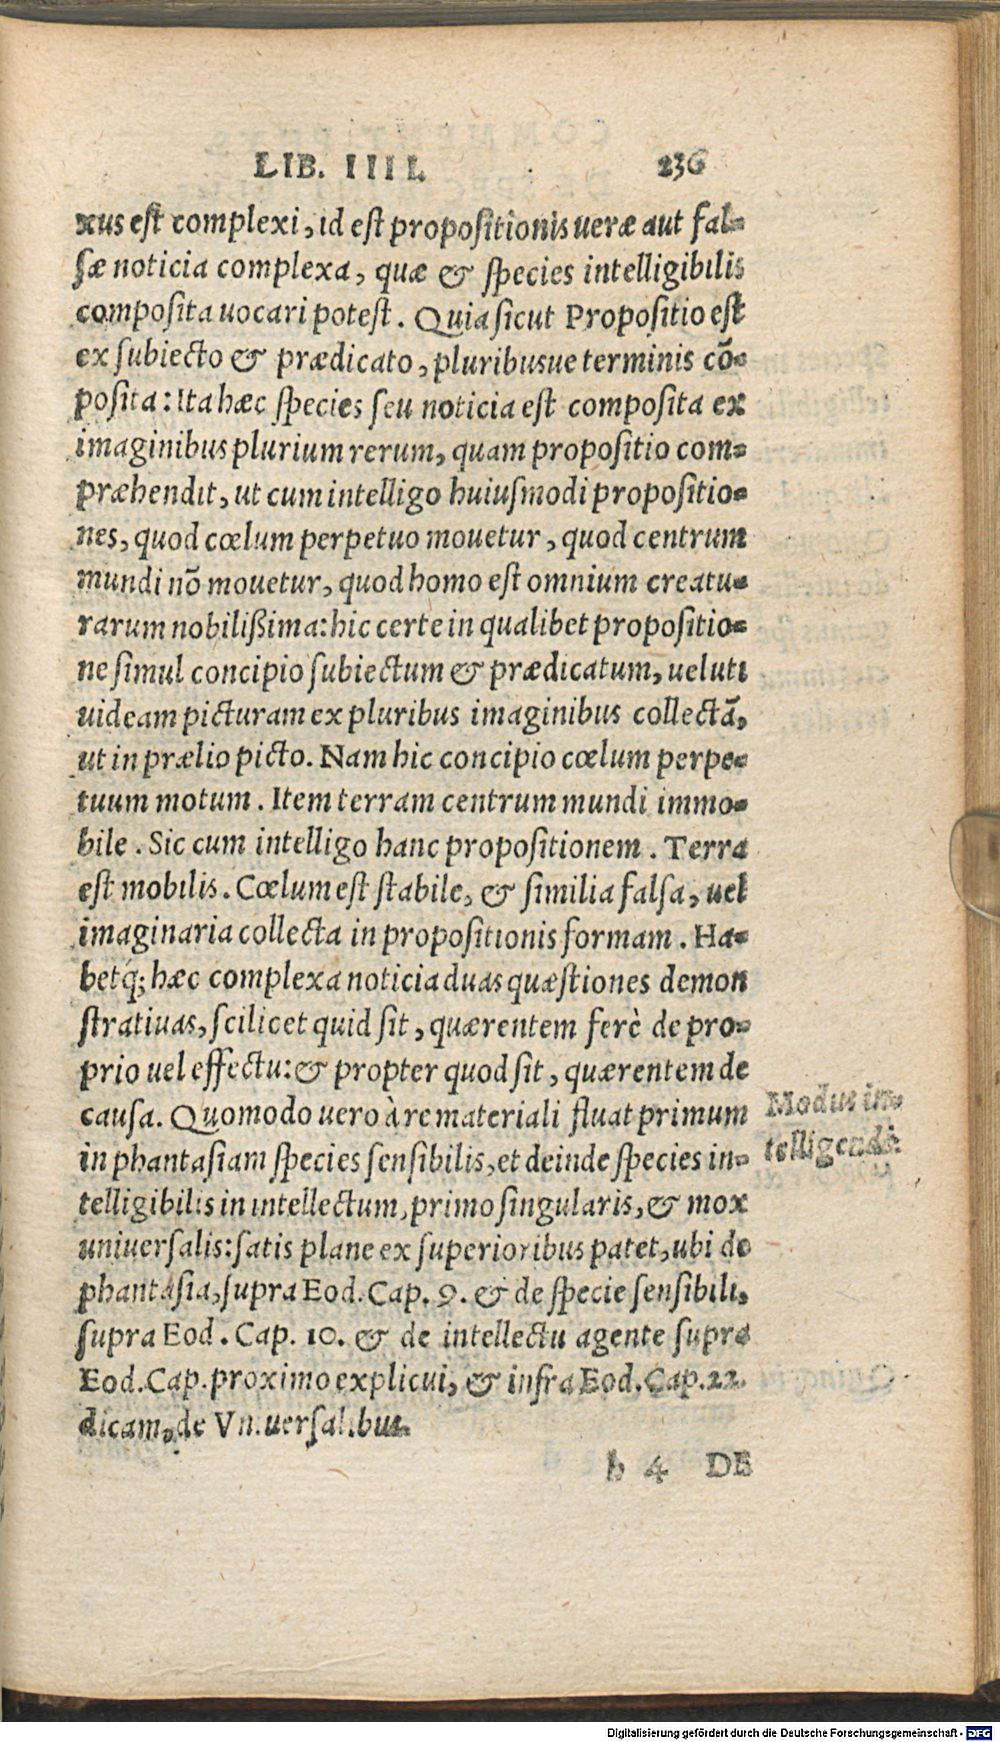 LIB. IIII. 236
xus est complexi, id est propositionis ueræ aut fal-
sæ noticia complexa, quæ & species intelligibilis
composita uocari potest. Quia sicut Propositio est
ex subiecto & prædicato, pluribusue terminis cõ-
posita: Ita hæc species seu noticia est composita ex
imaginibus plurium rerum, quam propositio com-
præhendit, ut cum intelligo huiusmodi propositio-
nes, quod cœlum perpetuo mouetur, quod centrum
mundi nõ mouetur, quod homo est omnium creatu-
rarum nobilißima: hic certe in qualibet propositio-
ne simul concipio subiectum & prædicatum, ueluti
uideam picturam ex pluribus imaginibus collectã,
ut in prælio picto. Nam hic concipio cœlum perpe-
tuum motum. Item terram centrum mundi immo-
bile. Sic cum intelligo hanc propositionem. Terra
est mobilis. Cœlum est stabile, & similia falsa, uel
imaginaria collecta in propositionis formam. Ha-
betq́; hæc complexa noticia duas quæstiones demon
stratiuas, scilicet quid sit, quærentem ferè de pro-
prio uel effectu: & propter quod sit, quærentem de
causa. Quomodo uero à re materiali fluat primum
in phantasiam species sensibilis, et deinde species in-
telligibilis in intellectum, primo singularis, & mox
uniuersalis: satis plane ex superioribus patet, ubi de
phantasia, supra Eod. Cap. 9. & de specie sensibili,
supra Eod. Cap. 10. & de intellectu agente supra
Eod. Cap. proximo explicui, & infra Eod. Cap. 22.
dicam, de Vniuersalibus.
Modus in-
telligendi.
h 4 DE
Digitalisierung gefördert durch die Deutsche Forschungsgemeinschaft - DFG